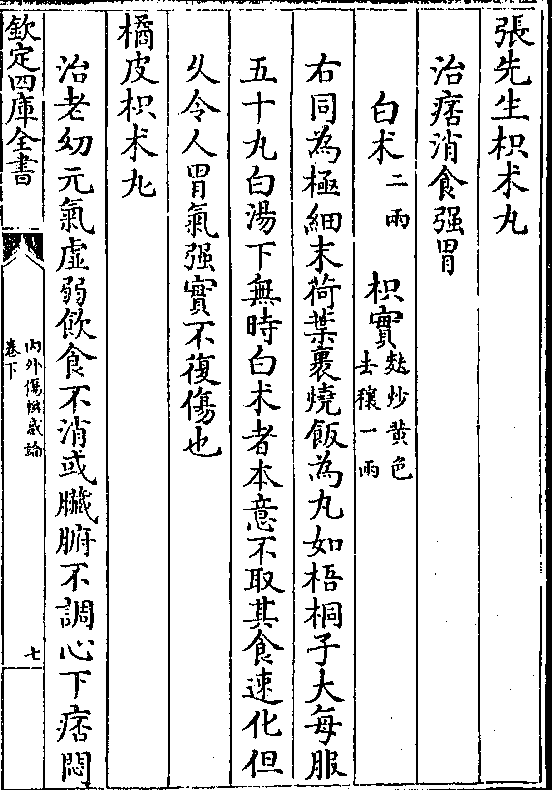 張先生枳术丸
治痞消食强胃
白术二兩 枳實麩炒黄色去穰一兩
右同為極細末荷葉裹燒飯為丸如梧桐子大每服
五十丸白湯下無時白术者本意不取其食速化但
久令人胃氣强實不復傷也
橘皮枳术丸
治老幼元氣虚弱飲食不消或臟腑不調心下痞悶
欽定四庫全書
內外傷辨惑論
卷下
七